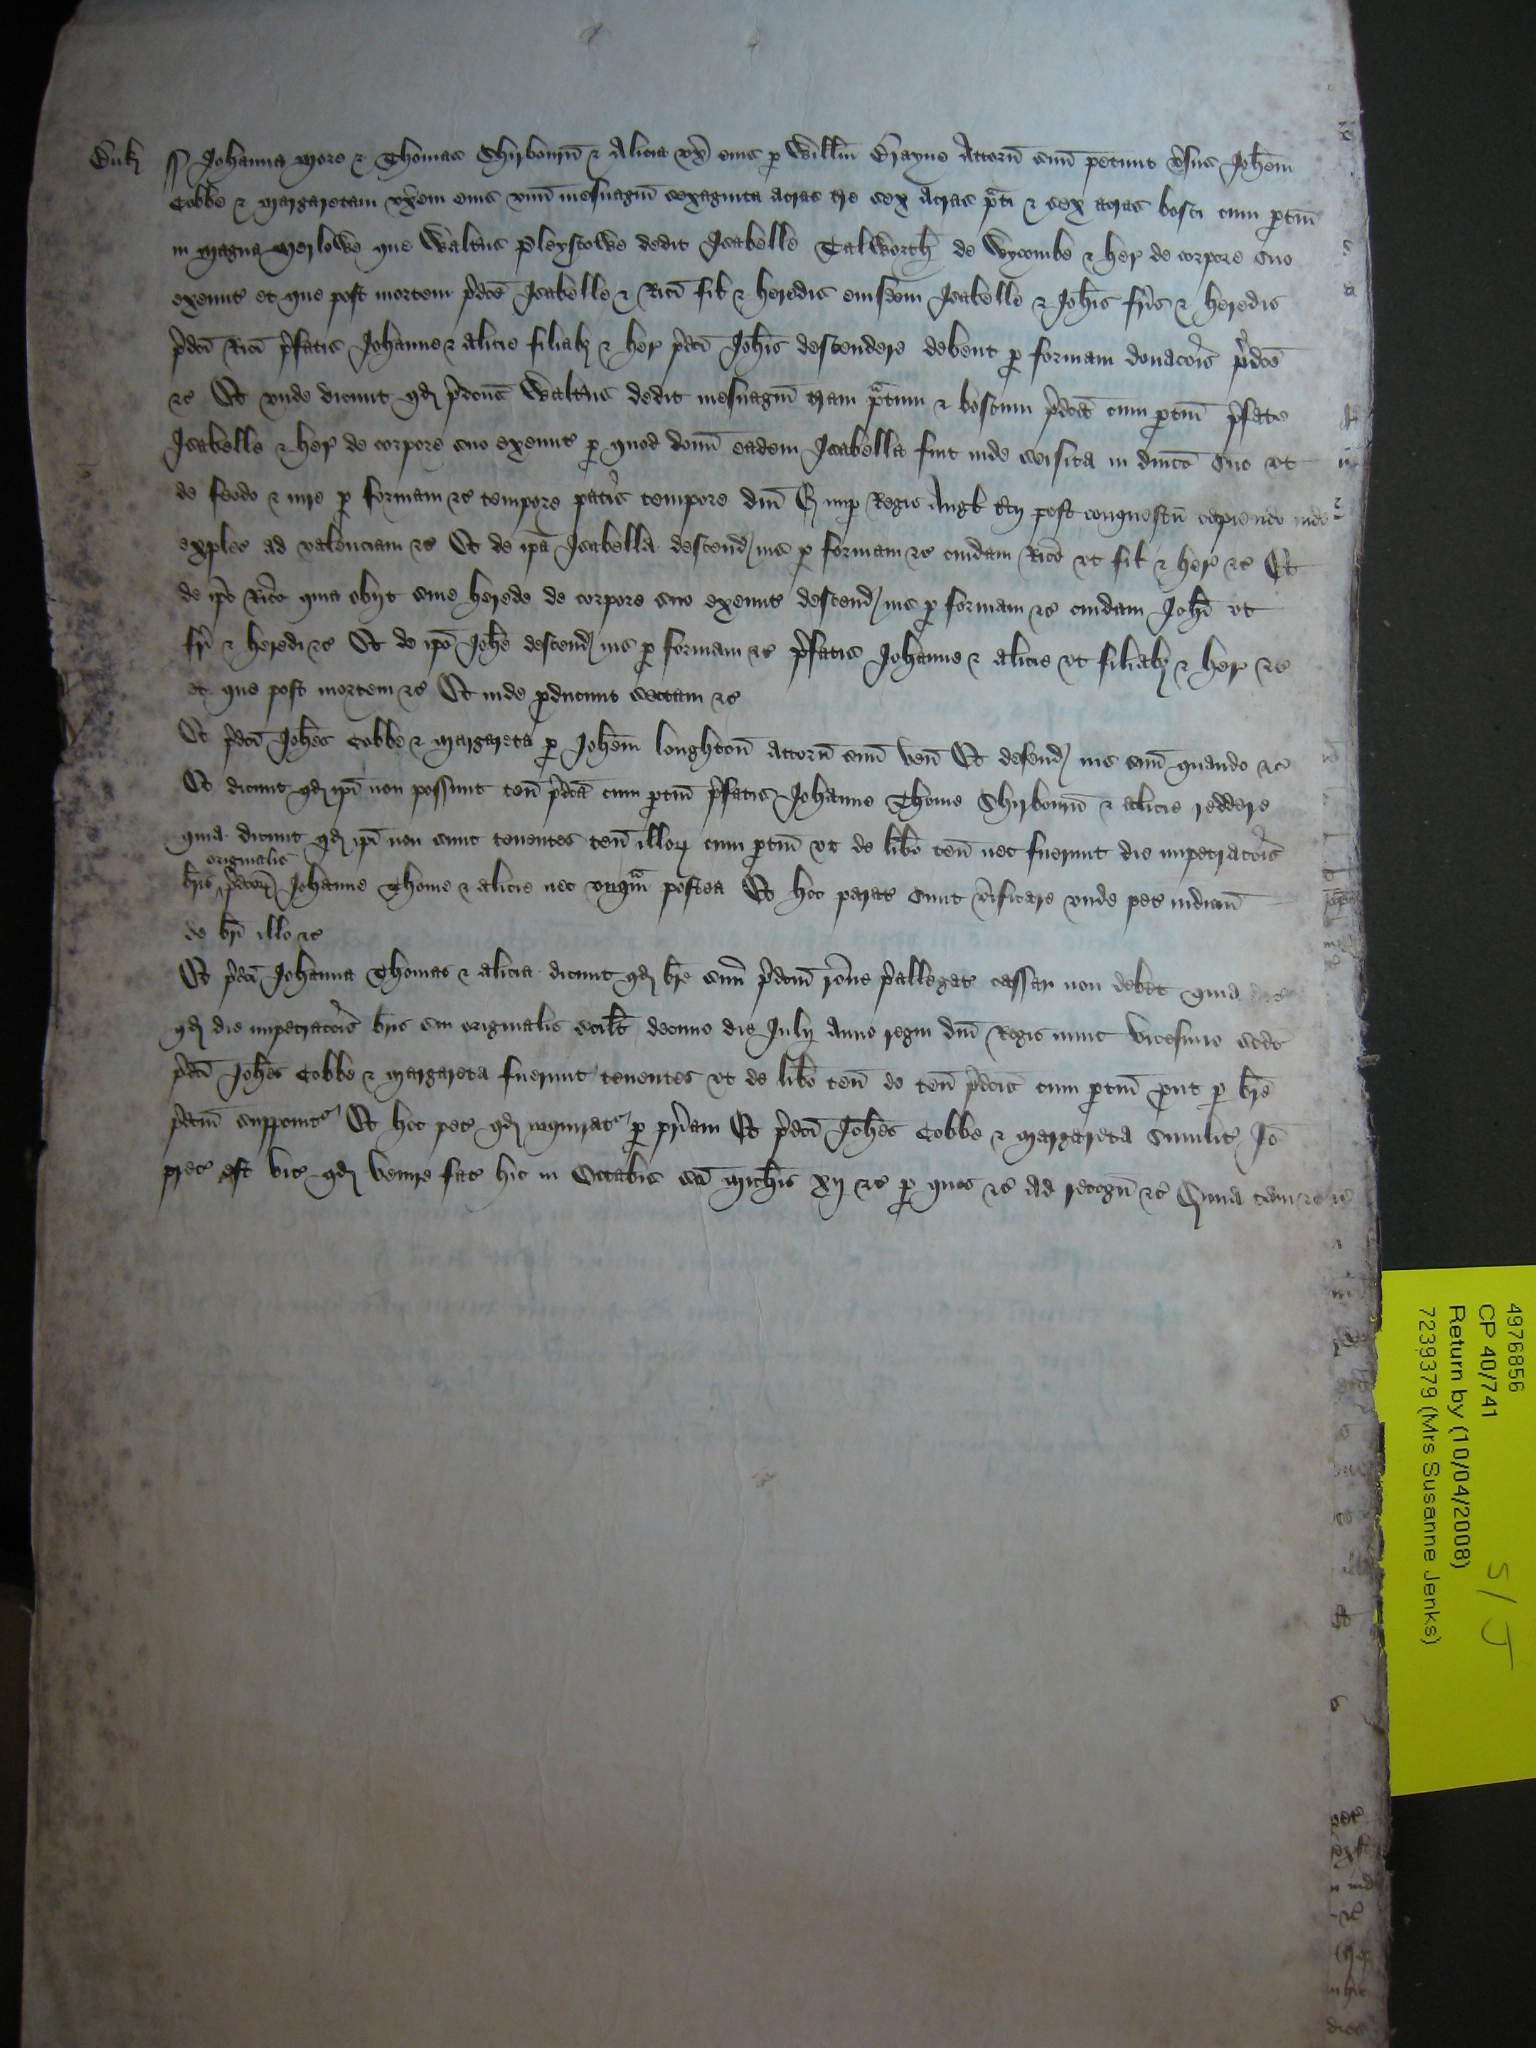 Buk ss Johanna More & Thomas Shirbourn & Alicia ux eius p Willm Brayne Attorn suu petunt vsus Johem
Cobbe & Margaretam uxem eius unu mesuagiu sexaginta acras tre sex acras pati & sex acras bosci cum ptin
in Magna Merlowe que Waltus Pleystowe dedit Isabelle Talworth de Wycombe & her de corpore suo
exeunt et que post mortem pdce Isabelle & Rici fil & heredis eiusdem Isabelle & Johis fris & heredis
pdci Rici pfatis Johanne & Alicie filiab & her pdci Johis descendere debent p formam donacois pdce
&c Et unde dicunt qd pdcus Waltus dedit mesuagiu tram patum & boscum pdca cum ptin pfate
Isabelle & her de corpore suo exeunt p quod donu eadem Isabella fuit inde seisita in dnico suo ut
de feodo & iure p formam &c tempore pacis tempore dni E nup Regis Angl tcij post conquestu capiendo inde
exples ad valenciam &c Et de ipa Isabella descend ius p formam &c cuidam Rico ut fil & her &c Et
de ipo Rico quia obijt sine herede de corpore suo exeunt descend ius p formam &c cuidam Johi ut
fri & heredi &c Et de ipo Johe descend ius p formam &c pfatis Johanne & Alicie ut filiab & her &c
et que post mortem &c Et inde pducunt sectam &c
Et pdci Johes Cobbe & Margareta p Johem Loughton Attorn suu ven Et defend ius suu quando &c
Et dicunt qd ipi non possunt ten pdca cum ptin pfatis Johanne Thome Shirbourn & Alicie reddere
quia dicunt qd ipi non sunt tenentes ten illor cum ptin ut de libo ten nec fuerunt die impetracois
originalis
bris pdcor Johanne Thome & Alicie nec unqam postea Et hoc parat sunt vificare unde pet iudiciu
de bri illo &c
Et pdci Johanna Thomas & Alicia dicunt qd bre suu pdcm rone pallegat cassari non debet quia
qd die impetracois bris sui originalis scilt decimo die Julij Anno regni dni Regis nunc vicesimo scdo
pdci Johes Cobbe & Margareta fuerunt tenentes ut de libo ten de ten pdcis cum ptin put p bre
pdcm supponit Et hoc pet qd inquirat p priam Et pdci Johes Cobbe & Margareta similit Io
prec est vic qd venire fac hic in Octabis sci Michis xij &c p quos &c ad recogn &c Quia tam &c
4976856
CP 40/741
Return by (10/04/2008)
7239379 (Mrs Susanne Jenks)
S/J